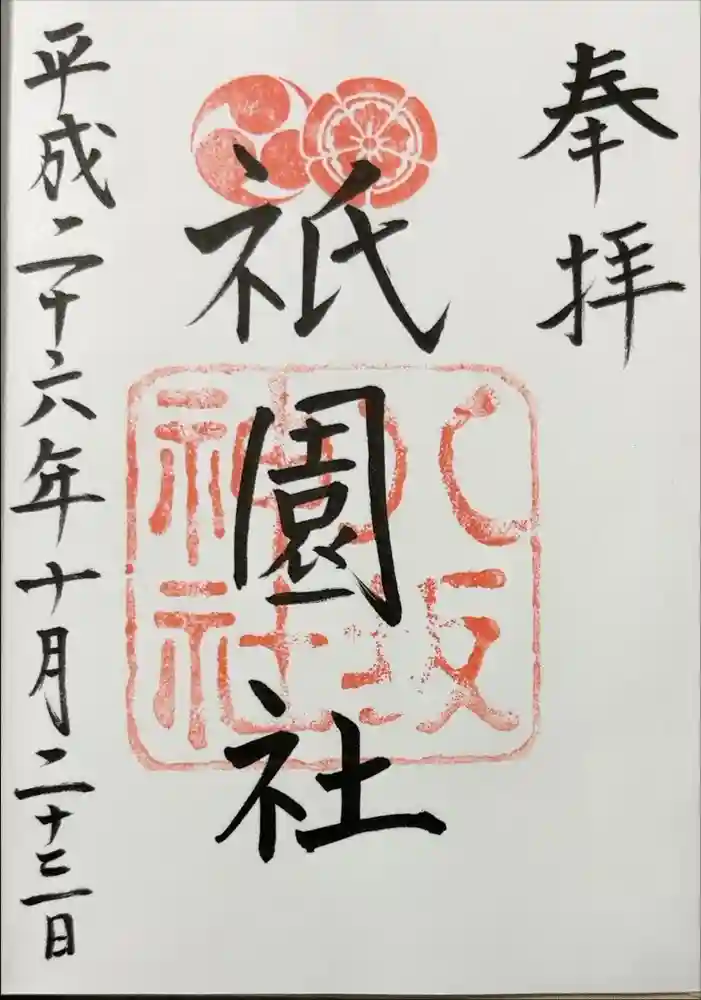 奉拝
祇園社
八坂神社
平成二十六年十月二十三日